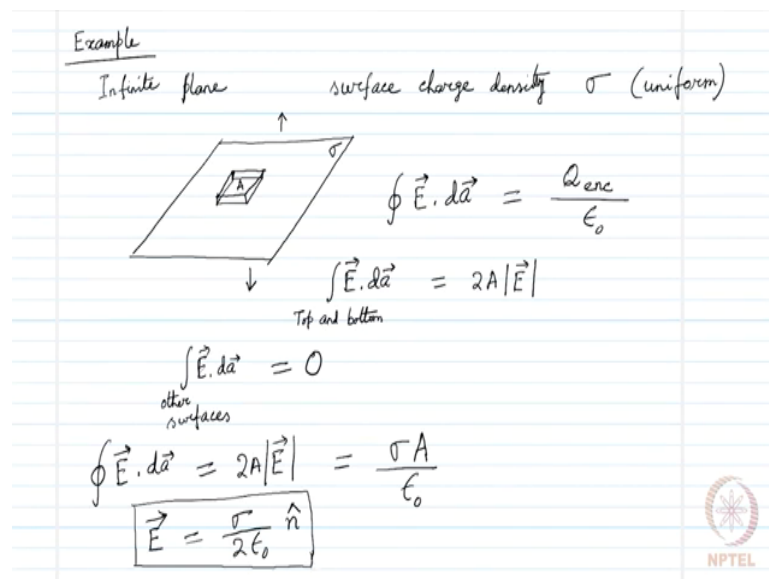 Example
Infinite plane surface charge density σ (uniform)
σ
A
∮ E⃗ . da⃗ = Q enc / ϵ₀
∫ E⃗ . da⃗ = 2A |E⃗|
Top and bottom
∫ E⃗ . da⃗ = 0
other
surfaces
∮ E⃗ . da⃗ = 2A |E⃗| = σ A / ϵ₀
E⃗ = σ / 2ϵ₀ n̂
NPTEL